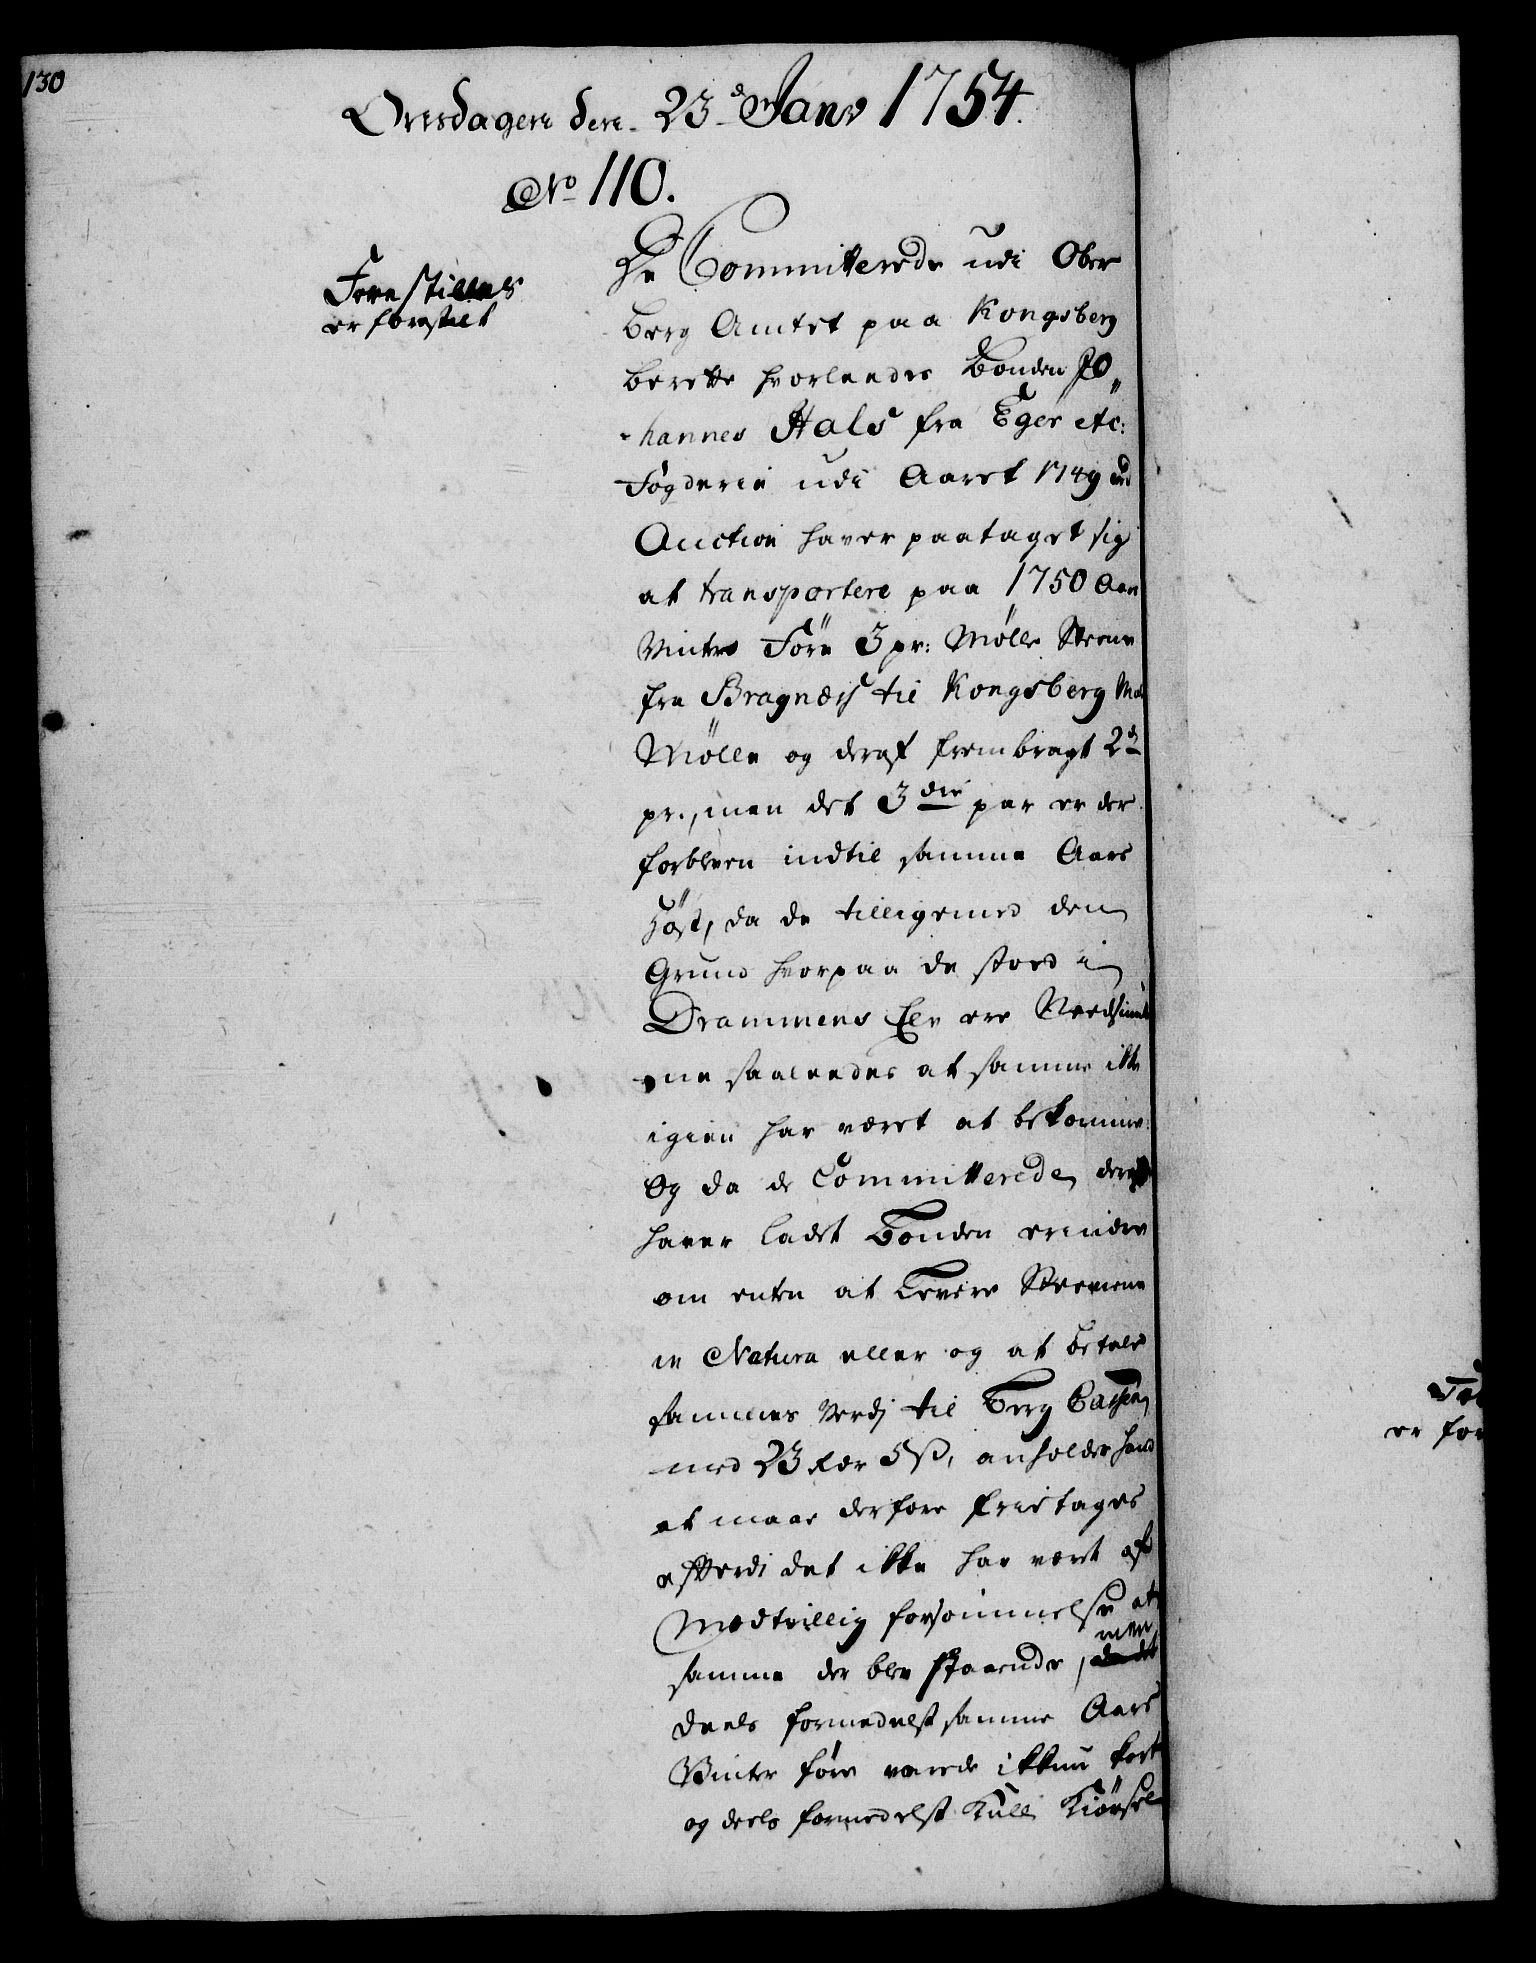 130
Onsdagen den 23de Janv 1754.
No 110.
Forestilles
er forestilt
De Committerede udi Ober
Berg Amtet paa Kongsberg
berette hvorledes Bonden Jo„
hannes Hals fra Eger etc:
Fogderie udi Aaret 1749 ved
Auction haver paataget sig
at transportere paa 1750 Aars
Vinter Före 3 pr: Mølle Steene
fra Bragnæs til Kongsberg
Mölle og deraf frembragt 2de
pr., men det 3die par er der
forbleven indtil samme Aars
Höst, da de tilligemed den
Grund hvorpaa de stoed i
Drammens Elv ere Needsunk
ne saaledes at samme ikke
igien har været at bekomme.
Og da de Committerede
haver ladet Bonden erindre
om enten at Levere Steenene
in Natura eller og at betale
sammes Verdj til Berg Cassen
med 23 rdr 5 ß, anholder hand
at maae derfore frietages
efterdi det ikke har været af
Modtvillig forsömmelse at
samme der blev staaende, men
deels formedelst samme Aars
Vinter före varede ikkun kort
og deels formedelst Kull Kiörsel
er for